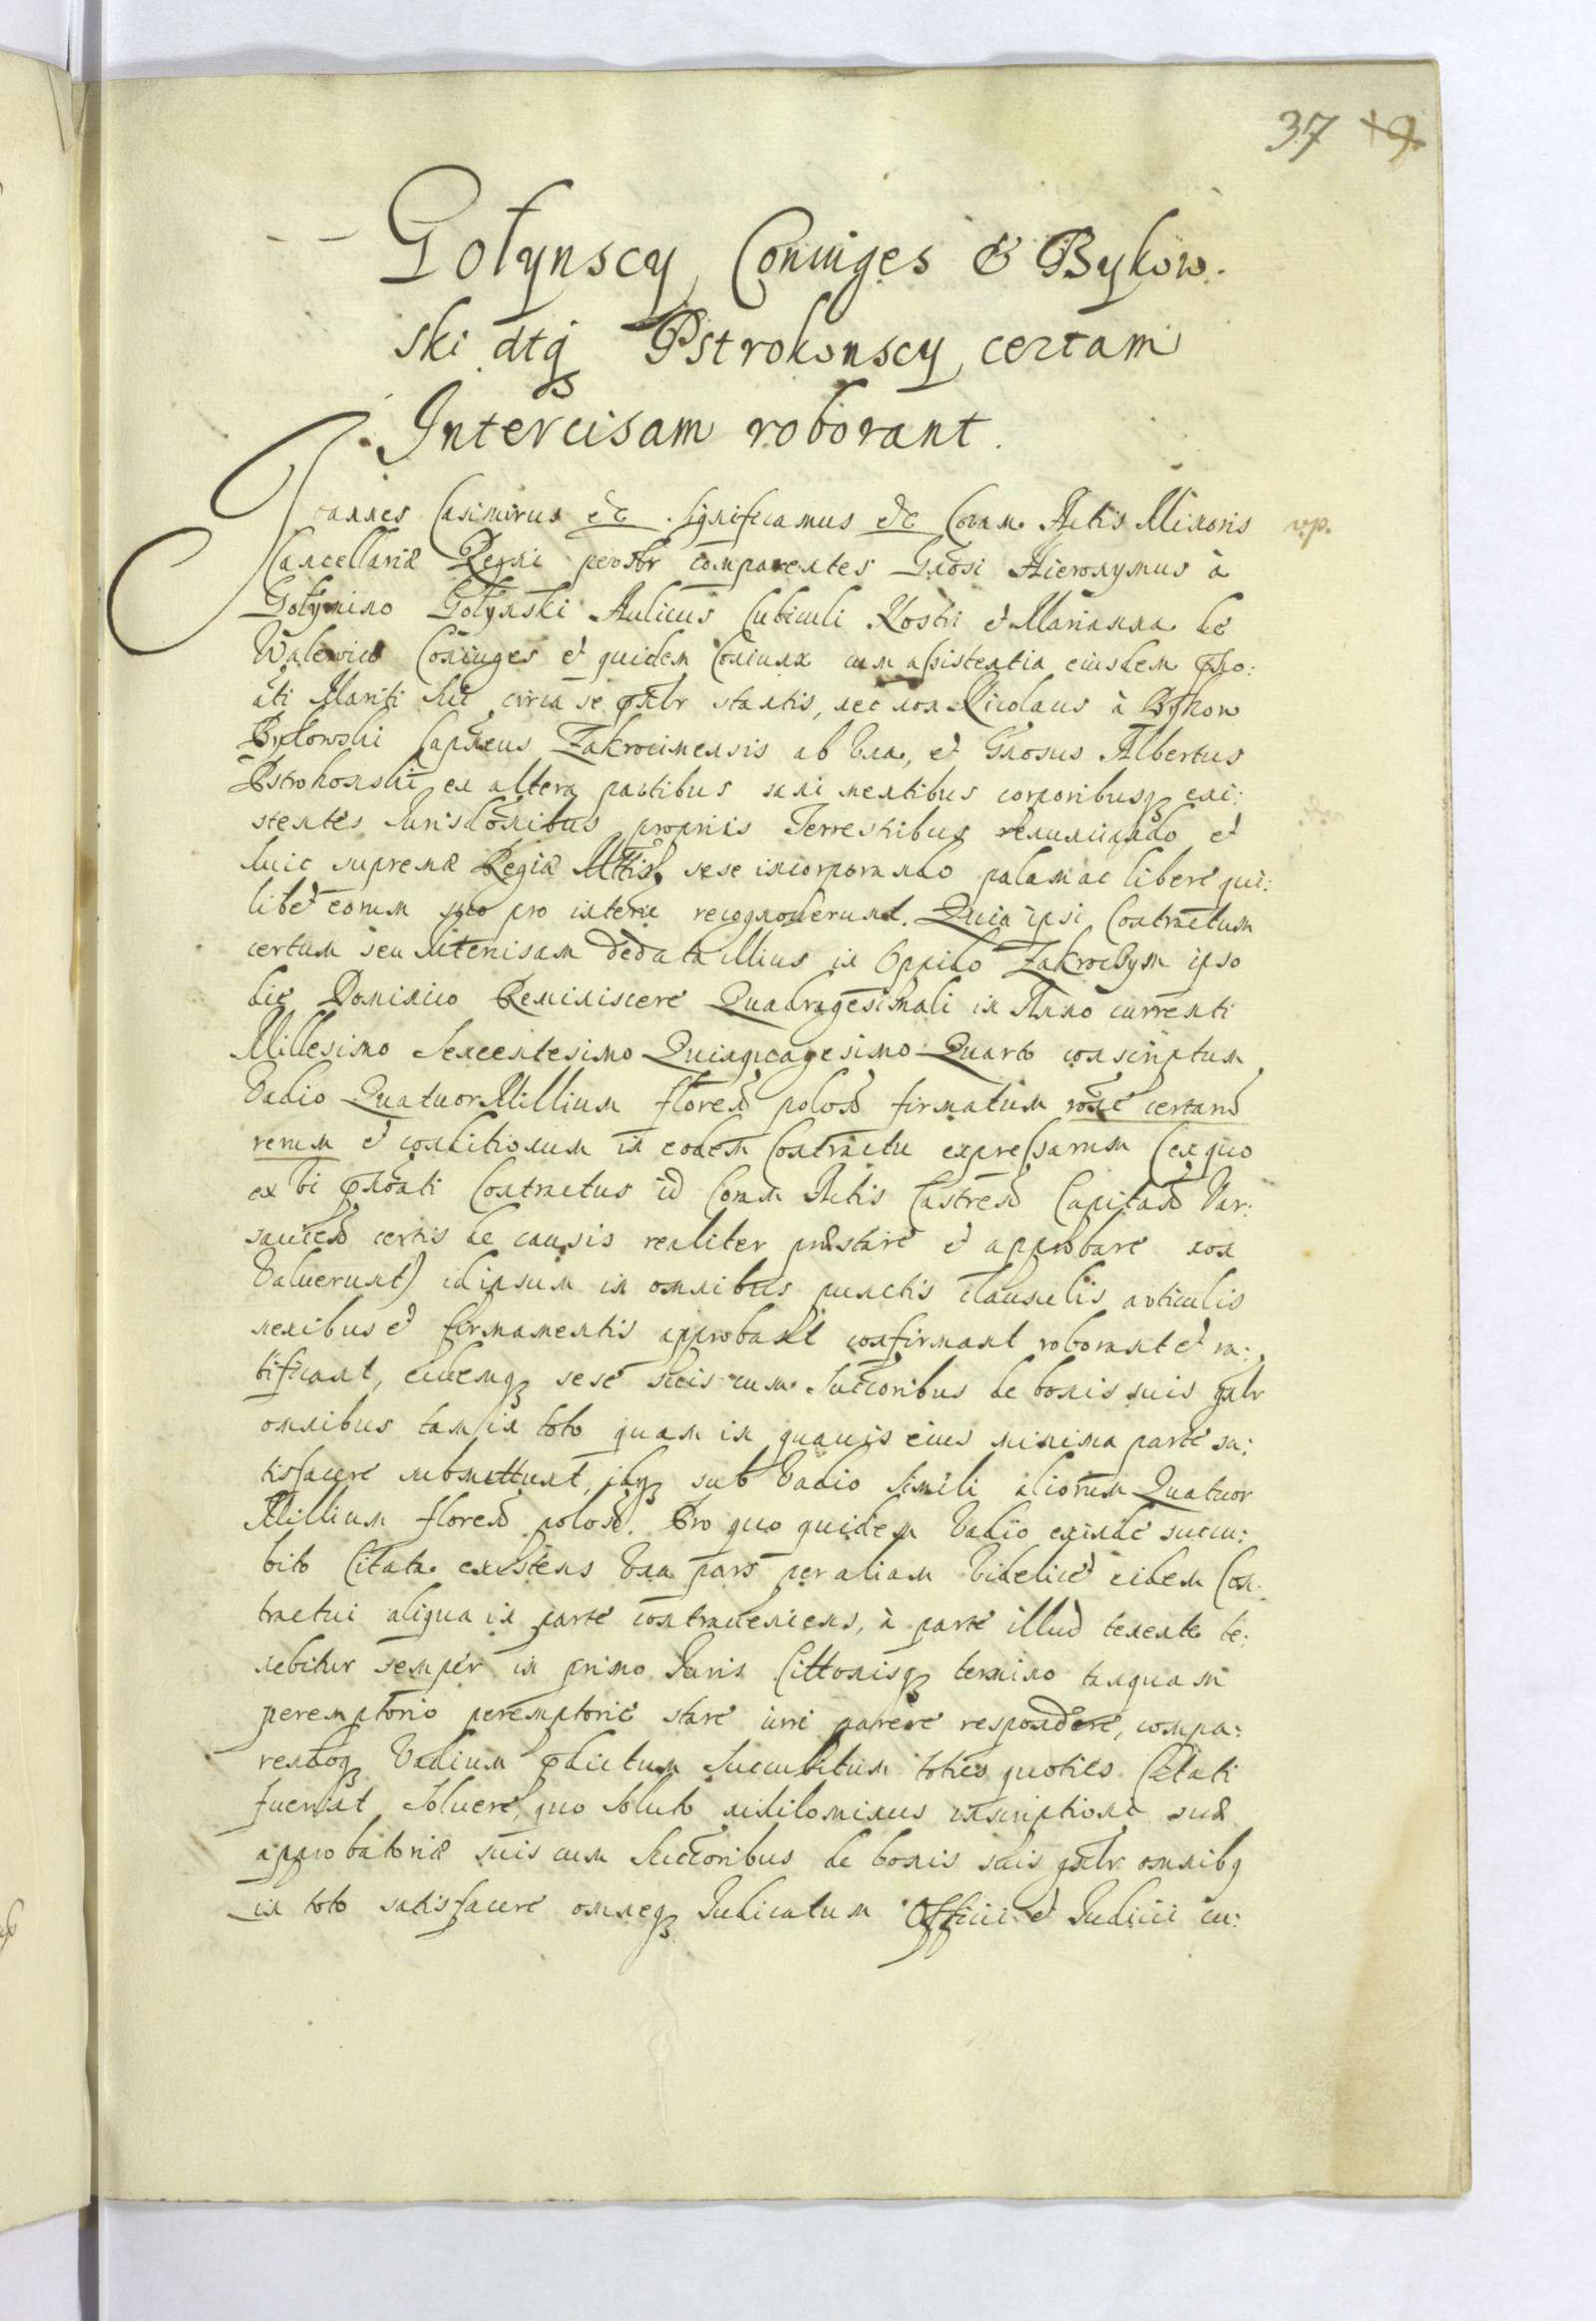 37 19
Gołynscy Coniuges & Bykow.
ski atq Pstrokonscy certam
Intercisam roborant.
Joannes Casimirus etc Significamus etc Coram Actis Minoris vp.
Cancellariæ Regni personr comparentes Gnosi Hieronymus à
Gołymino Gołynski Aulicus Cubiculi Nostri et Marianna de
Walewice Coniuges et quidem Coniunx cum assistentia eiusdem præno:
ati Mariti sui circa se pntr stantis, nec non Nicolaus à Bykow
Bykowski Capneus Zakrocimensis ab Vna, et Gnosus Albertus
Pstrokonski ex altera partibus sani mentibus corporibusq exi:
stentes Jurisdonibus propriis Terrestribus renunciando et
huic supremæ Regiæ Mttis sese incorporando palam ac libere qui:
libet eorum suo pro interee recognouerunt. Quia ipsi Contractum
certum seu intercisam de data illius in Oppido Zakroczym ipso
die Dominico Reminiscere Quadragesimali in Anno currenti
Millesimo Sexcentesimo Quinquagesimo Quarto conscriptum
Vadio Quatuor Millium floren polon firmatum rone certaru
rerum et conditionum in eodem Contractu expressarum (ex quo
ex vi prænoati Contractus id Coram Actis Castren Capitan Var:
sauien certis de causis realiter præstare et approbare non
Valuerunt) id ipsum in omnibus punctis clausulis articulis
nexibus et firmamentis approbant confirmant roborant et ra:
tificant, eidemq sese suis cum Succoribus de bonis suis gnlr
omnibus tam in toto quam in quauis eius minima parte sa:
tisfacere submittunt, idq sub Vadio simili aliorum Quatuor
Millium floren polon. Pro quo quidem Vadio exinde succu:
bito Citata existens Vna pars per aliam Videlicet eidem Con:
tractui aliqua in parte contraueniens, à parte illud tenente te:
nebitur semper in primo Juris Cittonisq termino tanquam
peremptorio peremptorie stare iuri parere respondere, compa:
rendoq Vadium prædictum Succubitum toties quoties Citati
fuerint Soluere, quo Soluto nihilominus inscriptioni suæ
approbatoriæ suis cum Succoribus de bonis suis gnlr omnibq
in toto satisfacere omneq Judicatum Officii et Judicii cu: